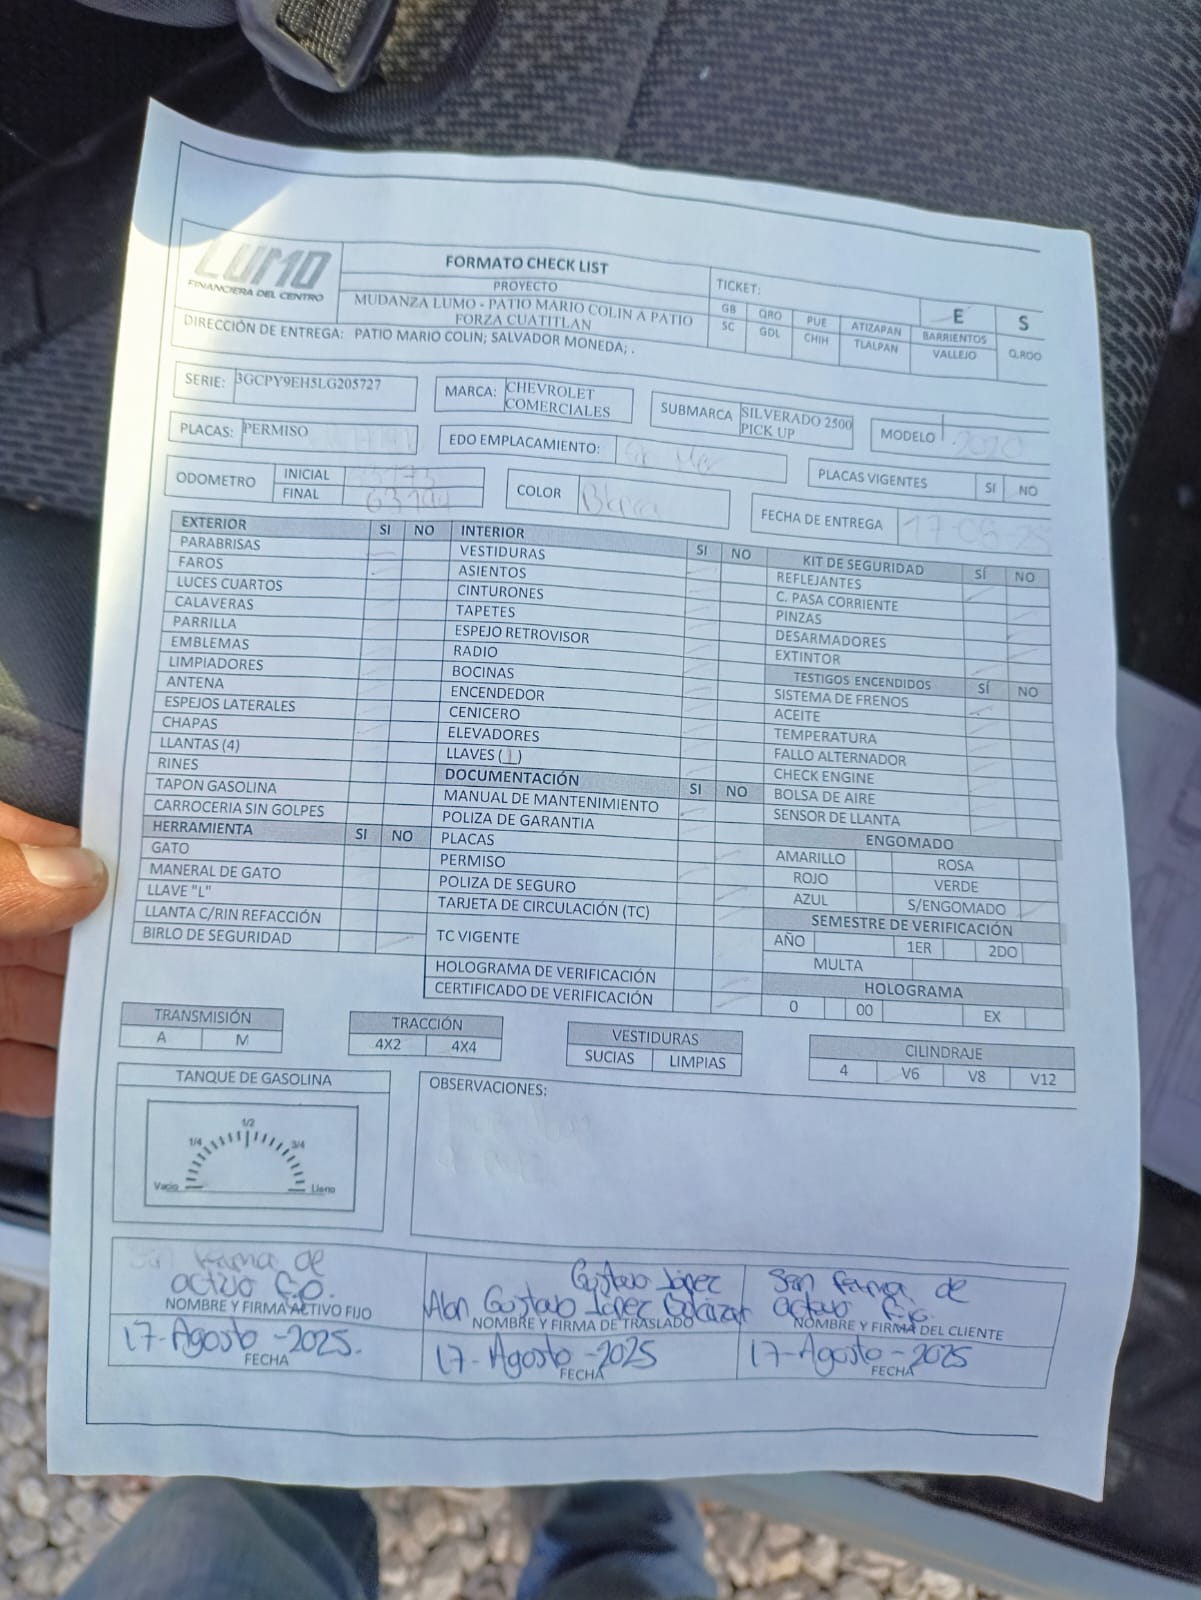 LUMO
FINANCIERA DEL CENTRO
FORMATO CHECK LIST
PROYECTO
MUDANZA LUMO - PATIO MARIO COLIN A PATIO
FORZA CUATITLAN
TICKET:
GB QRO PUE ATIZAPAN E S
SC GDL CHIH TLALPAN BARRIENTOS Q.ROO
VALLEJO
DIRECCIÓN DE ENTREGA: PATIO MARIO COLIN; SALVADOR MONEDA; .
SERIE: 3GCPY9EH5LG205727
MARCA: CHEVROLET
COMERCIALES
SUBMARCA SILVERADO 2500
PICK UP
MODELO 2020
PLACAS: PERMISO
EDO EMPLACAMIENTO:
PLACAS VIGENTES SI NO
ODOMETRO INICIAL
FINAL
COLOR
FECHA DE ENTREGA
EXTERIOR SI NO
PARABRISAS
FAROS
LUCES CUARTOS
CALAVERAS
PARRILLA
EMBLEMAS
LIMPIADORES
ANTENA
ESPEJOS LATERALES
CHAPAS
LLANTAS (4)
RINES
TAPON GASOLINA
CARROCERIA SIN GOLPES
HERRAMIENTA SI NO
GATO
MANERAL DE GATO
LLAVE "L"
LLANTA C/RIN REFACCIÓN
BIRLO DE SEGURIDAD
INTERIOR SI NO
VESTIDURAS
ASIENTOS
CINTURONES
TAPETES
ESPEJO RETROVISOR
RADIO
BOCINAS
ENCENDEDOR
CENICERO
ELEVADORES
LLAVES (1)
DOCUMENTACIÓN SI NO
MANUAL DE MANTENIMIENTO
POLIZA DE GARANTIA
PLACAS
PERMISO
POLIZA DE SEGURO
TARJETA DE CIRCULACIÓN (TC)
TC VIGENTE
HOLOGRAMA DE VERIFICACIÓN
CERTIFICADO DE VERIFICACIÓN
KIT DE SEGURIDAD SÍ NO
REFLEJANTES
C. PASA CORRIENTE
PINZAS
DESARMADORES
EXTINTOR
TESTIGOS ENCENDIDOS SÍ NO
SISTEMA DE FRENOS
ACEITE
TEMPERATURA
FALLO ALTERNADOR
CHECK ENGINE
BOLSA DE AIRE
SENSOR DE LLANTA
ENGOMADO
AMARILLO ROSA
ROJO VERDE
AZUL S/ENGOMADO
SEMESTRE DE VERIFICACIÓN
AÑO 1ER 2DO
MULTA
HOLOGRAMA
0 00 EX
TRANSMISIÓN
A M
TRACCIÓN
4X2 4X4
VESTIDURAS
SUCIAS LIMPIAS
CILINDRAJE
4 V6 V8 V12
TANQUE DE GASOLINA
1/4 1/2 3/4
Vacio Lleno
OBSERVACIONES:
Sin firma de
activo F.O.
NOMBRE Y FIRMA ACTIVO FIJO
17-Agosto-2025.
FECHA
Gustavo López
Alan Gustavo López
NOMBRE Y FIRMA DE TRASLADO
17-Agosto-2025
FECHA
San firma de
NOMBRE Y FIRMA DEL CLIENTE
17-Agosto-2025
FECHA